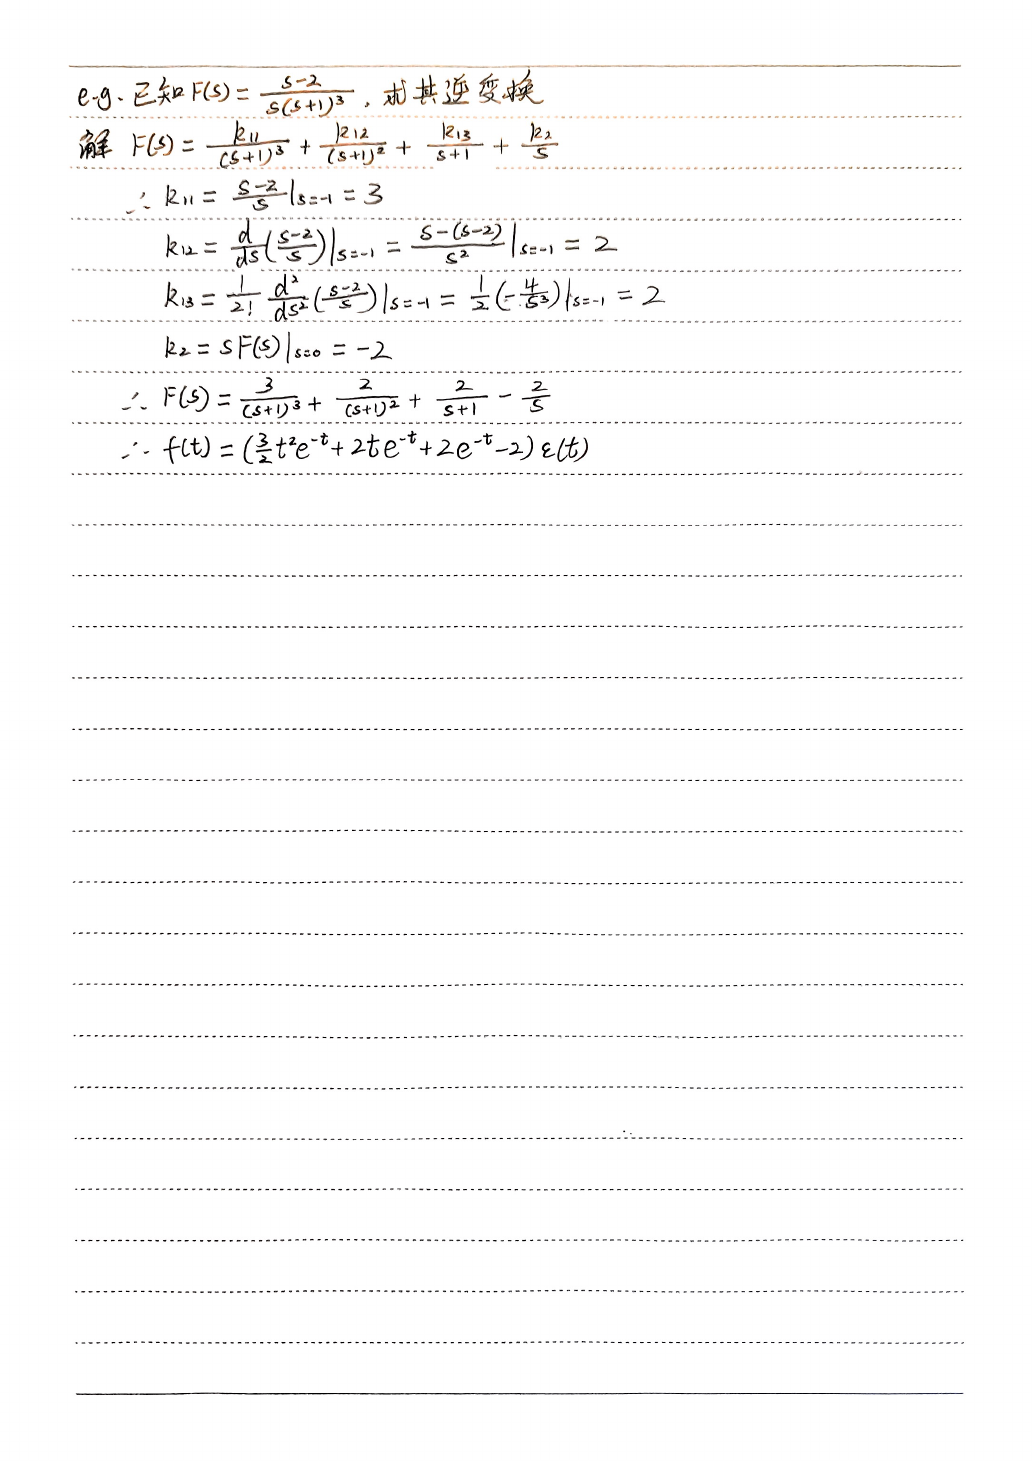 e.g. 已知 F(s) = \frac{s-2}{s(s+1)^3}, 求其逆变换
解 F(s) = \frac{k_{11}}{(s+1)^3} + \frac{k_{12}}{(s+1)^2} + \frac{k_{13}}{s+1} + \frac{k_2}{s}
∴ k_{11} = \frac{s-2}{s}|_{s=-1} = 3
k_{12} = \frac{d}{ds}(\frac{s-2}{s})|_{s=-1} = \frac{s-(s-2)}{s^2}|_{s=-1} = 2
k_{13} = \frac{1}{2!} \frac{d^2}{ds^2}(\frac{s-2}{s})|_{s=-1} = \frac{1}{2}(-\frac{4}{s^3})|_{s=-1} = 2
k_2 = sF(s)|_{s=0} = -2
∴ F(s) = \frac{3}{(s+1)^3} + \frac{2}{(s+1)^2} + \frac{2}{s+1} - \frac{2}{s}
∴ f(t) = (\frac{3}{2}t^2e^{-t} + 2te^{-t} + 2e^{-t} - 2) ε(t)